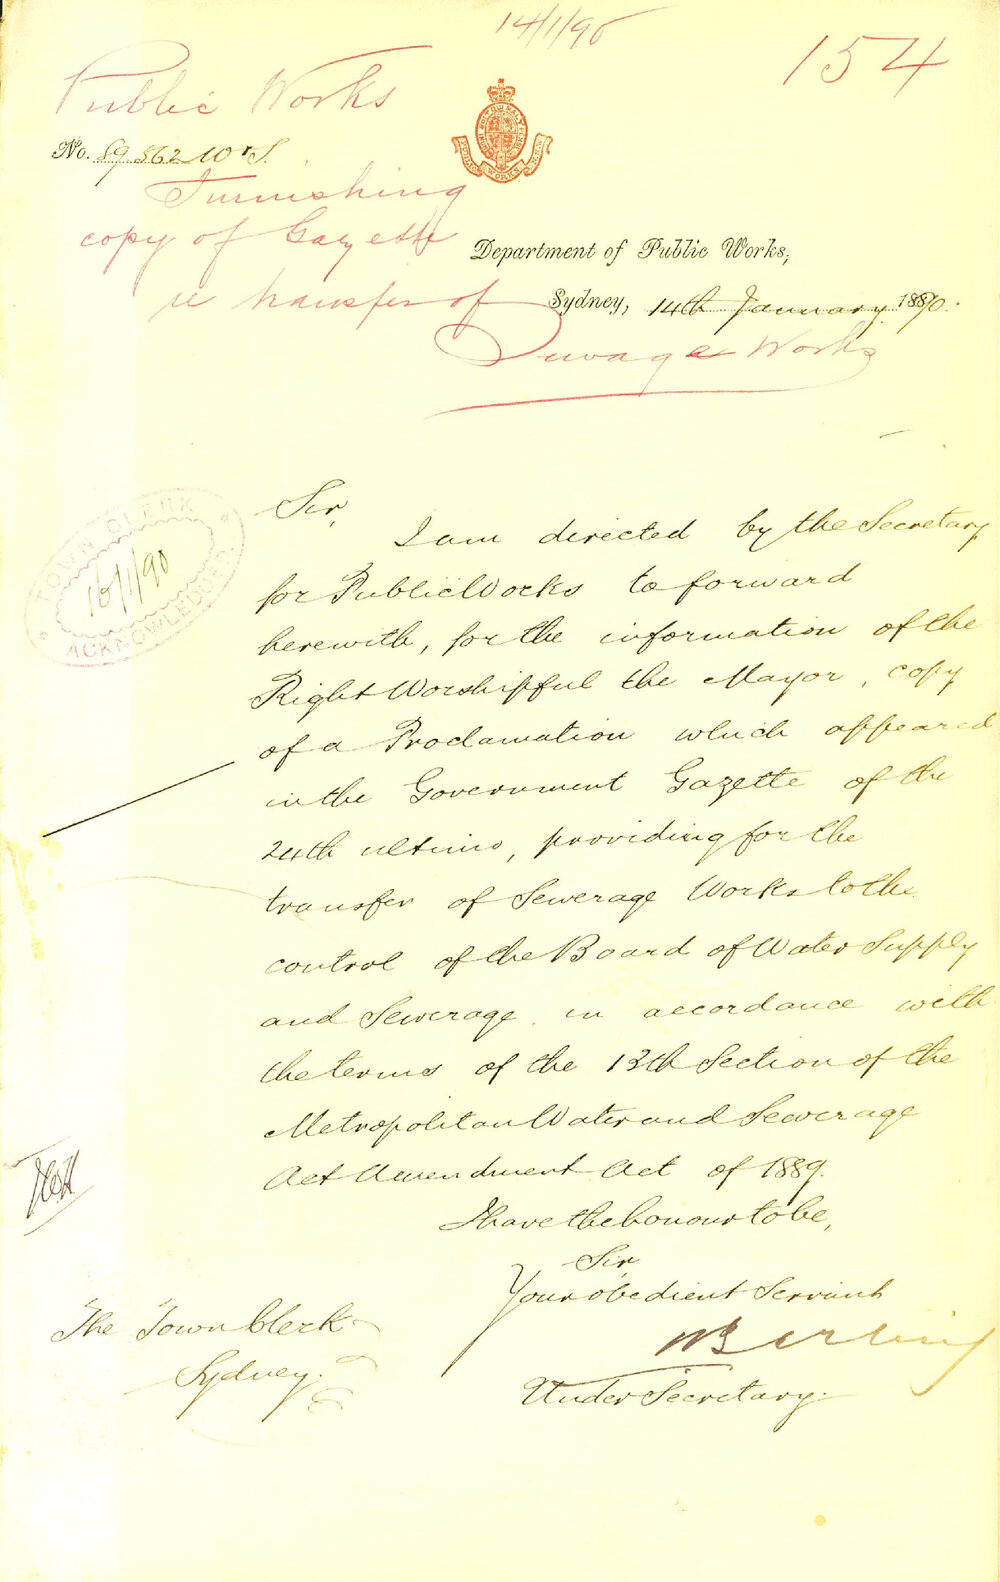 14/1/90
154
Public Works
No. 89.862 Wor S.
Furnishing
copy of Gazette
re transfer of
Sewage Works
PUBLIC WORKS N.S.W.
Department of Public Works,
Sydney, 14th January 1890.
TOWN CLERK
16/1/90
ACKNOWLEDGED
Sir,
I am directed by the Secretary
for Public Works to forward
herewith, for the information of the
Right Worshipful the Mayor, copy
of a Proclamation which appeared
in the Government Gazette of the
24th ultimo, providing for the
transfer of Sewerage Works to the
control of the Board of Water Supply
and Sewerage in accordance with
the terms of the 13th Section of the
Metropolitan Water and Sewerage
Act Amendment Act of 1889.
I have the honour to be,
Sir,
Your obedient Servant
Under Secretary.
The Town Clerk
Sydney.